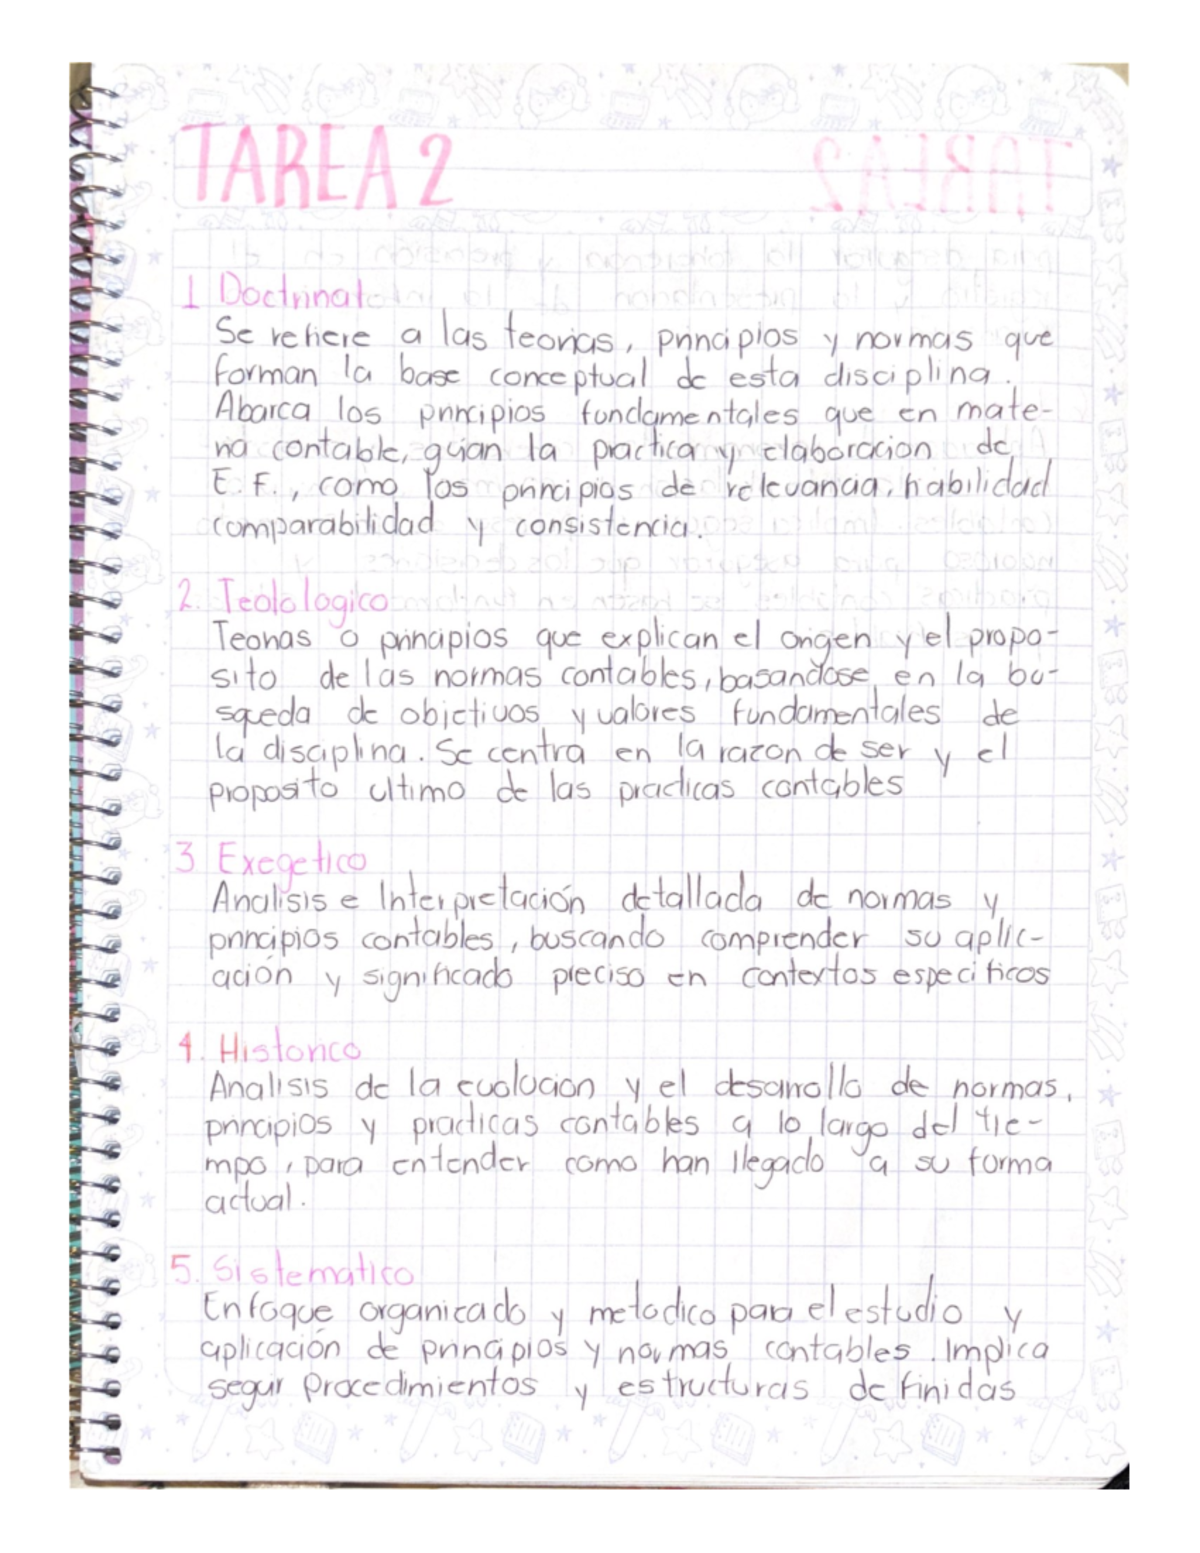 TAREA 2
1 Doctrinal
Se refiere a las teorias, principios y normas que
forman la base conceptual de esta disciplina.
Abarca los principios fundamentales que en mate-
ria contable, guian la practica y elaboracion de
E.F., como los principios de relevancia, fiabilidad
comparabilidad y consistencia.
2. Teolologico
Teorias o principios que explican el origen y el propo-
sito de las normas contables, basandose en la bu-
squeda de objetivos y valores fundamentales de
la disciplina. Se centra en la razon de ser y el
proposito ultimo de las practicas contables
3 Exegetico
Analisis e Interpretación detallada de normas y
principios contables, buscando comprender su aplic-
ación y significado preciso en contextos especificos
4. Historico
Analisis de la evolucion y el desarrollo de normas,
principios y practicas contables a lo largo del tie-
mpo, para entender como han llegado a su forma
actual.
5. Sistematico
Enfoque organizado y metodico para el estudio y
aplicación de principios y normas contables. Implica
seguir procedimientos y estructuras definidas